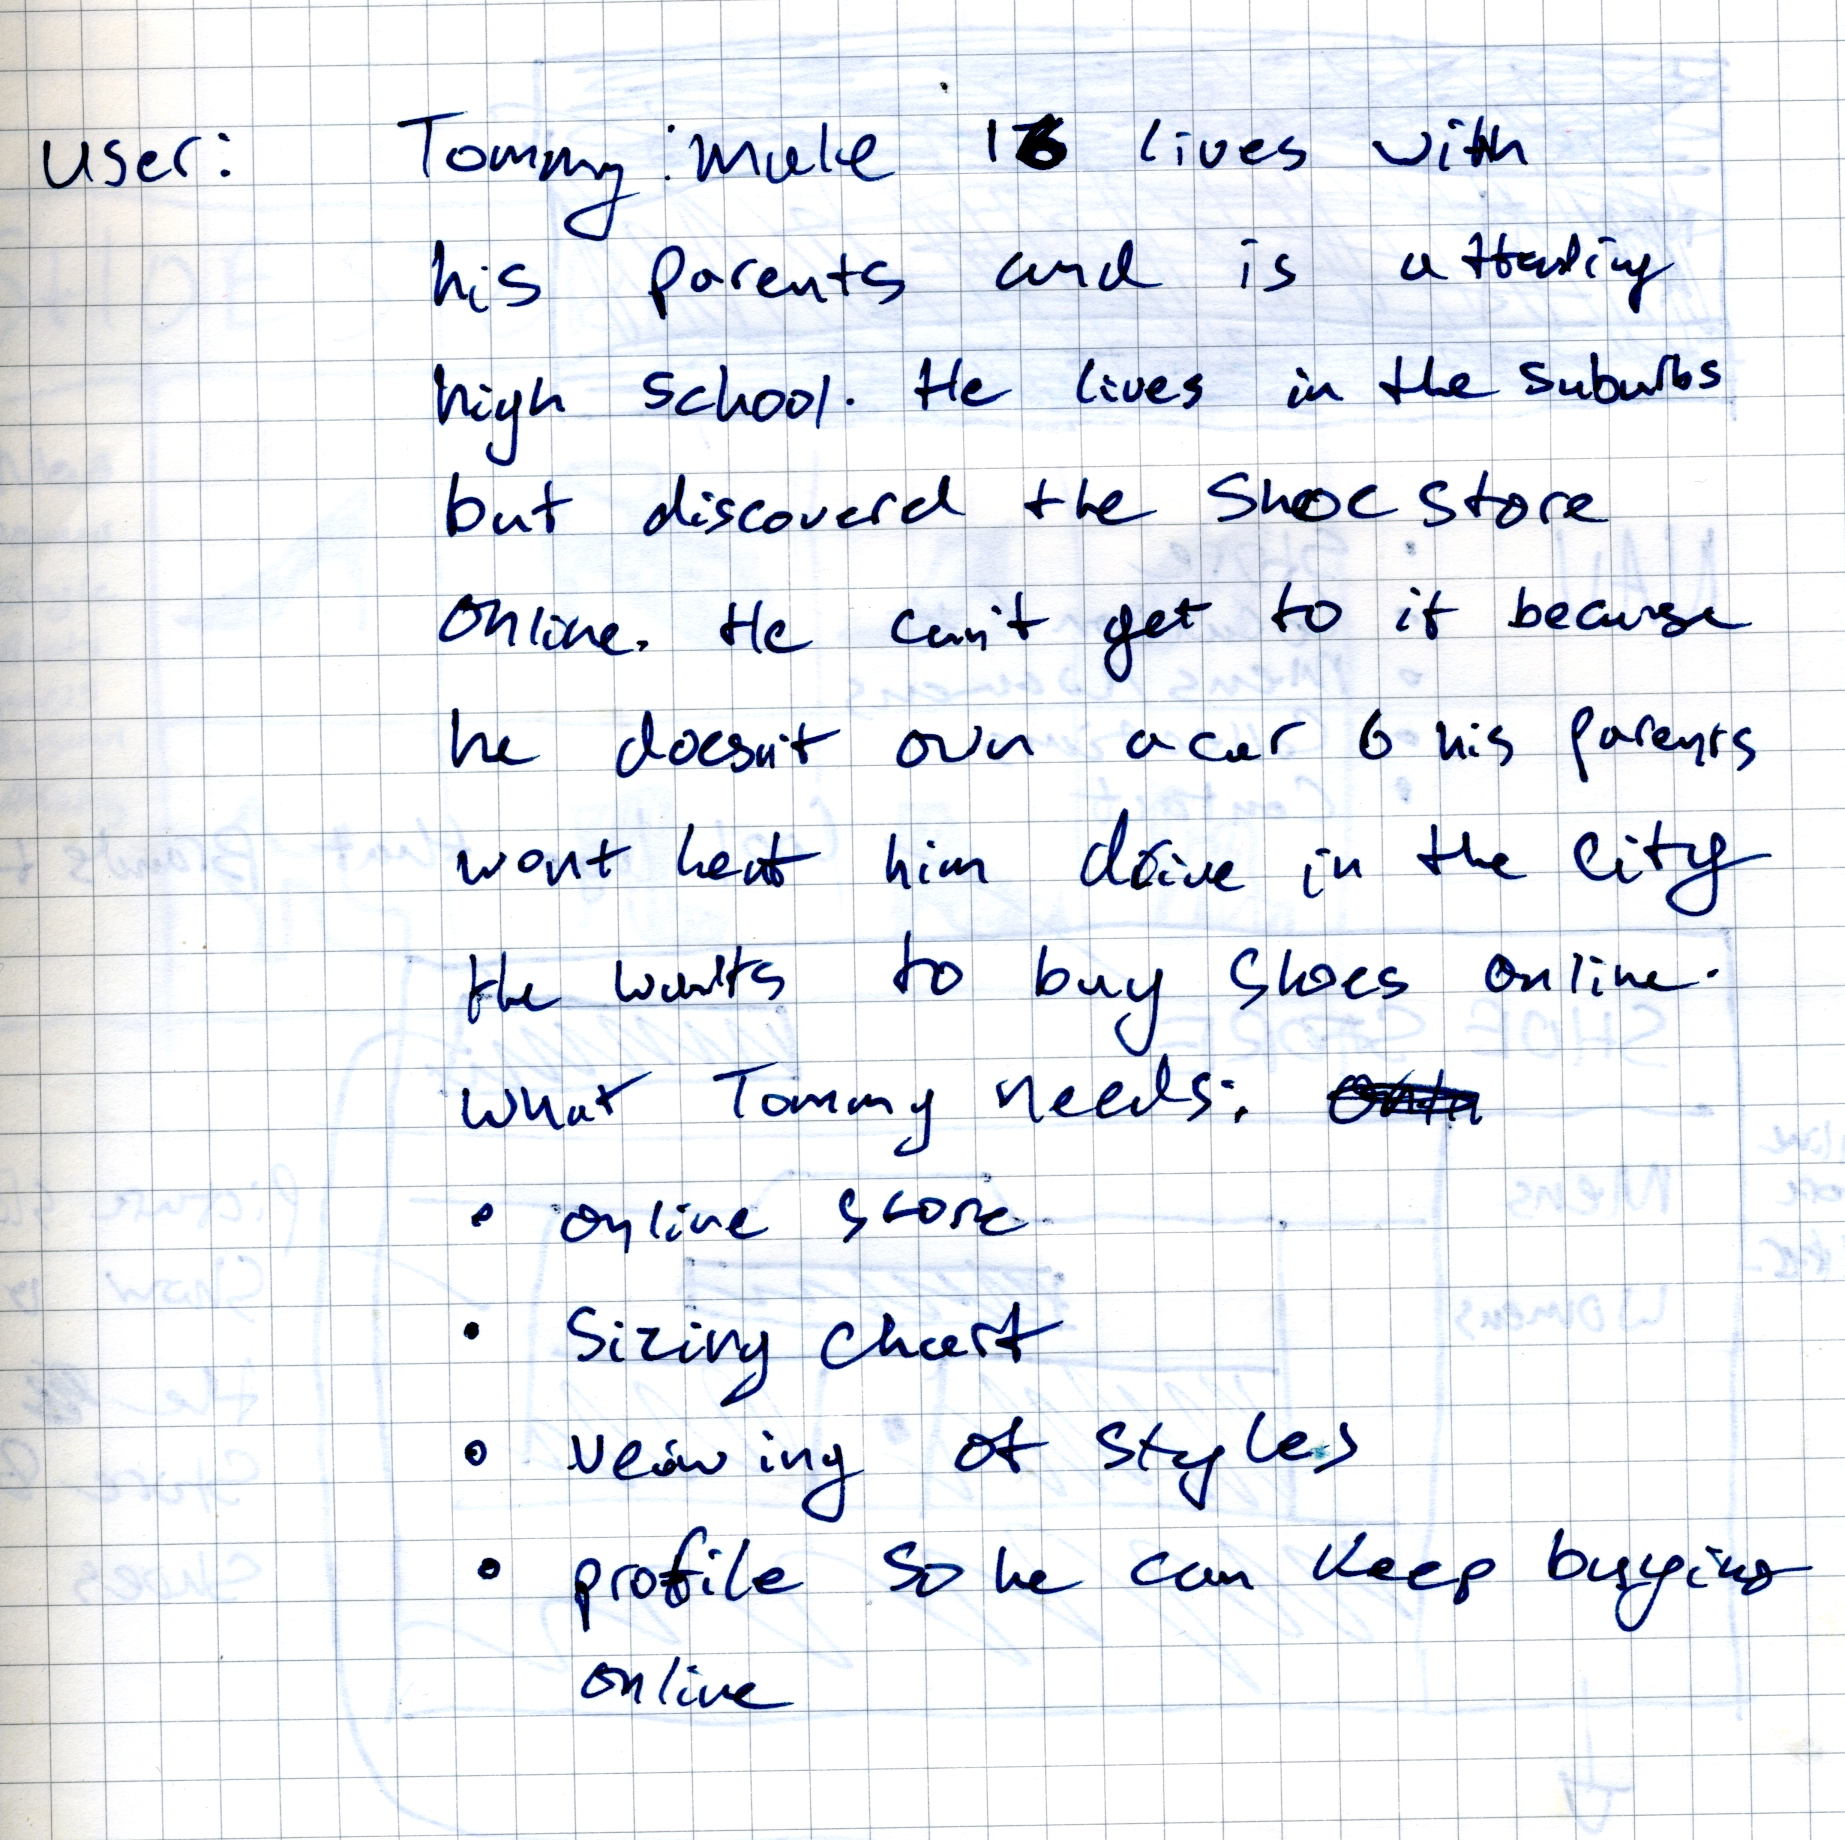 user: Tommy: Male 16 lives with
his parents and is attending
high school. He lives in the suburbs
but discoverd the Shoe Store
online. He can't get to it because
he doesn't own a car & his parents
wont let him drive in the city
He wants to buy shoes online.
what Tommy needs:
• online store
• Sizing chart
• veiwing of styles
• profile so he can keep buying
online